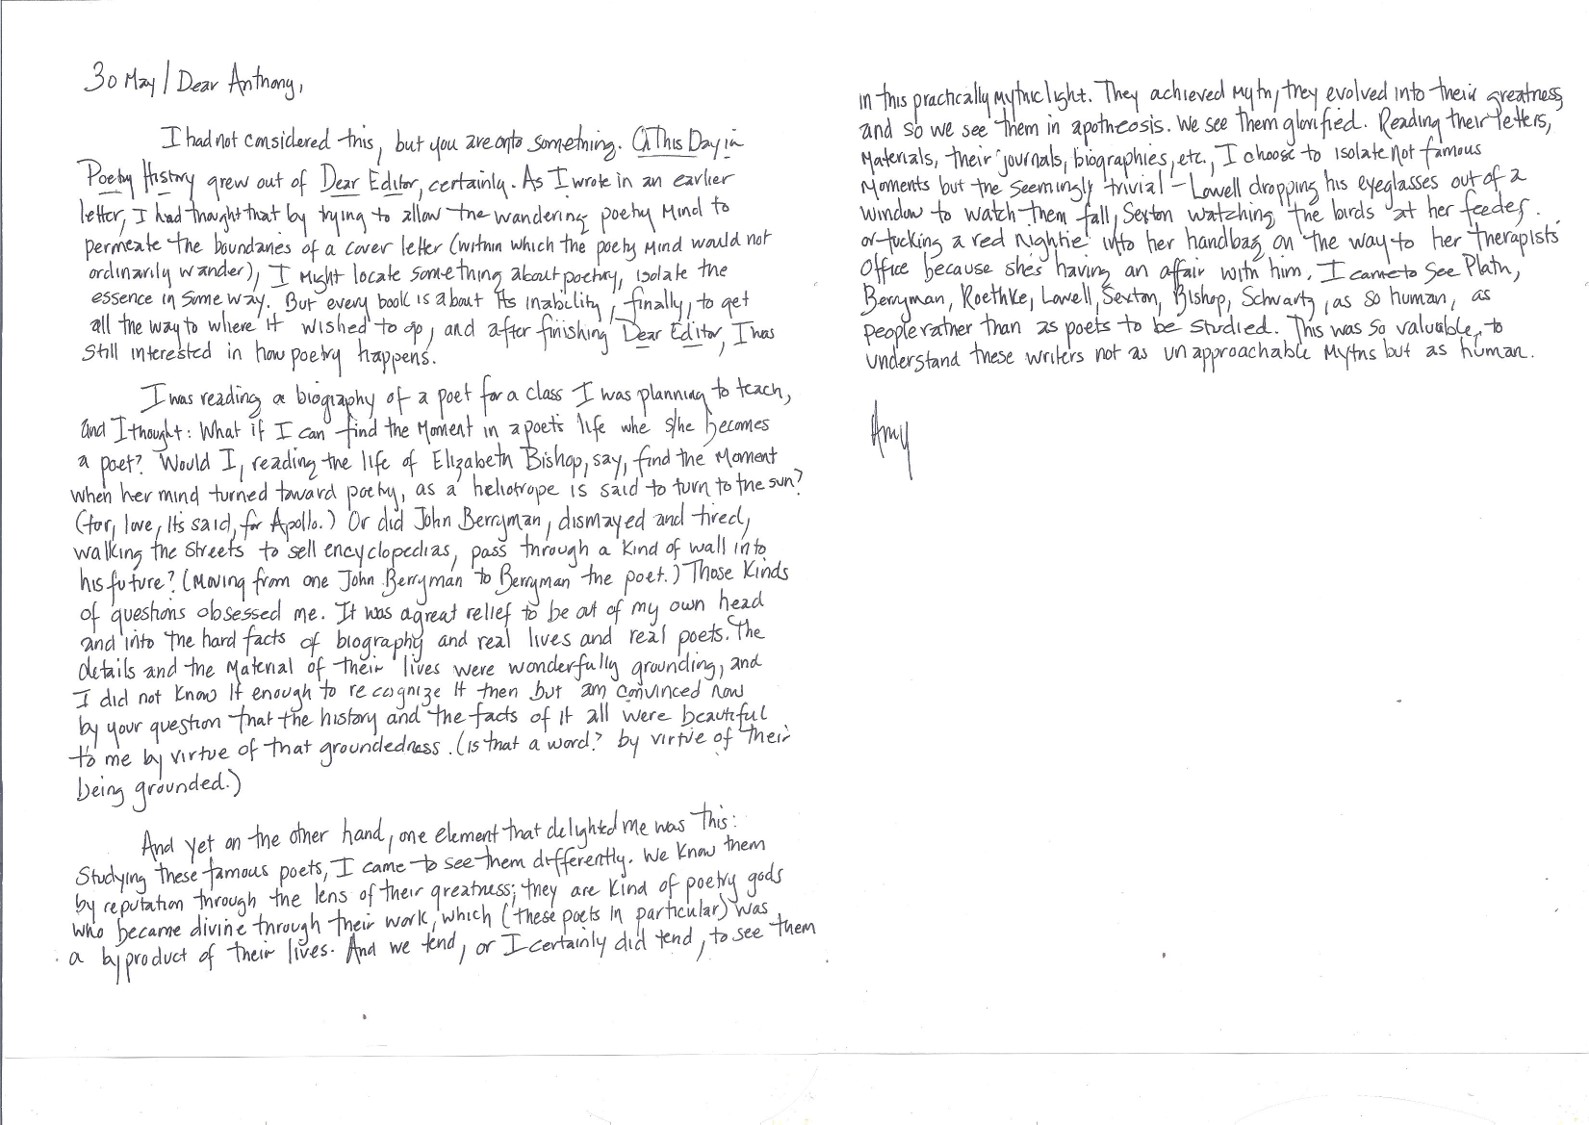 30 May / Dear Anthony,
I had not considered this, but you are onto something. This Day in
Poetry History grew out of Dear Editor, certainly. As I wrote in an earlier
letter, I had thought that by trying to allow the wandering poetry mind to
permeate the boundaries of a cover letter (within which the poety mind would not
ordinarily wander), I might locate something about poetry, isolate the
essence in some way. But every book is about its inability, finally, to get
all the way to where it wished to go, and after finishing Dear Editor, I was
still interested in how poetry happens.
I was reading a biography of a poet for a class I was planning to teach,
and I thought: What if I can find the moment in a poet's life whe s/he becomes
a poet? Would I, reading the life of Elizabeth Bishop, say, find the moment
when her mind turned toward poetry, as a heliotrope is said to turn to the sun?
(for, love, it's said, for Apollo.) Or did John Berryman, dismayed and tired,
walking the streets to sell encyclopedias, pass through a kind of wall into
his future? (Moving from one John Berryman to Berryman the poet.) Those kinds
of questions obsessed me. It was a great relief to be out of my own head
and into the hard facts of biography and real lives and real poets. The
details and the material of their lives were wonderfully grounding, and
I did not know it enough to recognize it then but am convinced now
by your question that the history and the facts of it all were beautiful
to me by virtue of that groundedness. (is that a word? by virtue of their
being grounded.)
And yet on the other hand, one element that delighted me was this:
Studying these famous poets, I came to see them differently. We know them
by reputation through the lens of their greatness; they are kind of poetry gods
who became divine through their work, which (these poets in particular) was
a byproduct of their lives. And we tend, or I certainly did tend, to see them
in this practically mythic light. They achieved myth, they evolved into their greatness
and so we see them in apotheosis. We see them glorified. Reading their letters,
materials, their journals, biographies, etc., I choose to isolate not famous
moments but the seemingly trivial – Lowell dropping his eyeglasses out of a
window to watch them fall, Sexton watching the birds at her feeder.
or tucking a red nightie into her handbag on the way to her therapists
office because she's having an affair with him. I came to see Plath,
Berryman, Roethke, Lowell, Sexton, Bishop, Schwartz, as so human, as
people rather than as poets to be studied. This was so valuable, to
understand these writers not as unapproachable myths but as human.
Amy